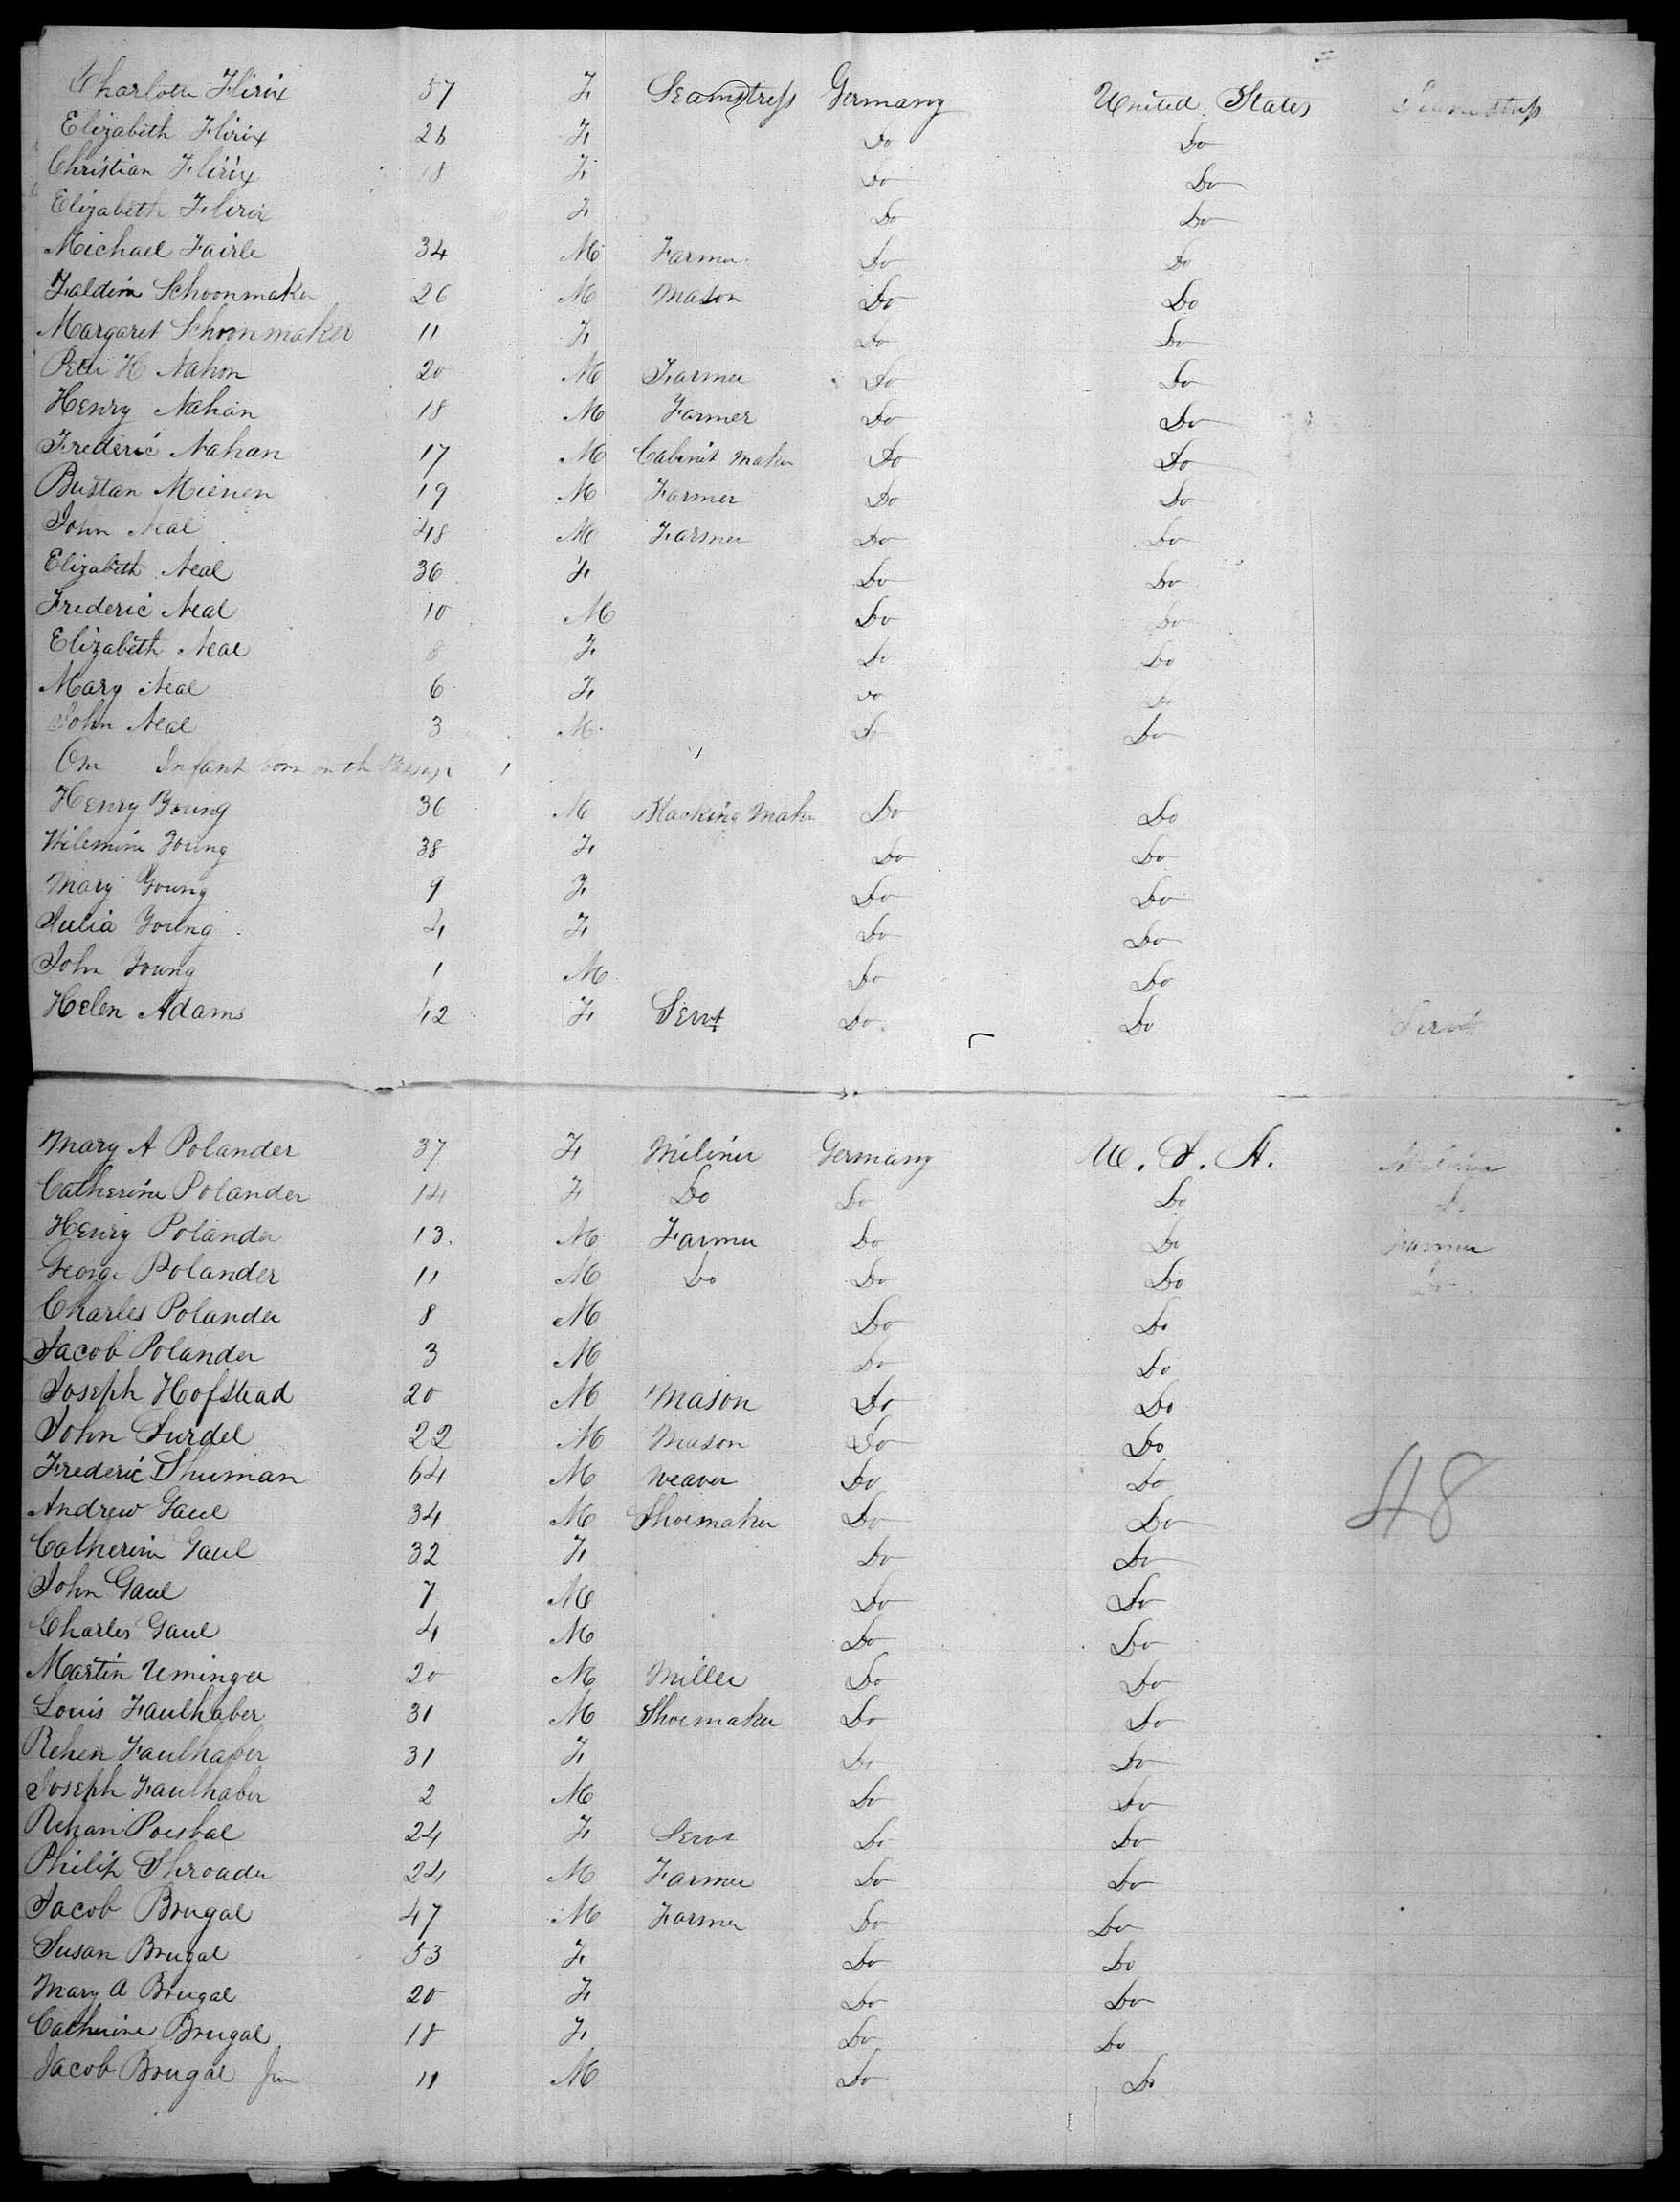 Charlotte Flirix 57 F Seamstress Germany United States Seamstress
Elizabeth Flirix 26 F Do Do
Christian Flirix 18 F Do Do
Elizabeth Flirix F Do Do
Michael Fairle 34 M Farmer Do Do
Faldin Schoonmaker 26 M Mason Do Do
Margaret Schoonmaker 11 F Do Do
Peter H Nahon 20 M Farmer Do Do
Henry Nahan 18 M Farmer Do Do
Frederic Nahan 17 M Cabinet Maker Do Do
Bustan Mienen 19 M Farmer Do Do
John Neal 48 M Farmer Do Do
Elizabeth Neal 36 F Do Do
Frederic Neal 10 M Do Do
Elizabeth Neal 8 F Do Do
Mary Neal 6 F Do Do
John Neal 3 M Do Do
One Infant born on the Passage
Henry Young 36 M Blacking Maker Do Do
Wilemine Young 38 F Do Do
Mary Young 9 F Do Do
Julia Young 4 F Do Do
John Young 1 M Do Do
Helen Adams 42 F Servt Do Do Servt
Mary A Polander 37 F Miliner Germany U. S. A. Miliner
Catherine Polander 14 F Do Do Do Do
Henry Polander 13. M Farmer Do Do Farmer
George Polander 11 M Do Do Do Do
Charles Polander 8 M Do Do
Jacob Polander 3 M Do Do
Joseph Hofstead 20 M Mason Do Do
John Surdel 22 M Mason Do Do
Frederic Shuman 64 M Weaver Do Do
48
Andrew Gaul 34 M Shoemaker Do Do
Catherine Gaul 32 F Do Do
John Gaul 7 M Do Do
Charles Gaul 4 M Do Do
Martin Uminger 20 M Miller Do Do
Louis Faulhaber 31 M Shoemaker Do Do
Rehen Faulhaber 31 F Do Do
Joseph Faulhaber 2 M Do Do
Rehan Poesbal 24 F Servt Do Do
Philip Shroader 24 M Farmer Do Do
Jacob Brugal 47 M Farmer Do Do
Susan Brugal 53 F Do Do
Mary A Brugal 20 F Do Do
Catherine Brugal 18 F Do Do
Jacob Brugal Jun 11 M Do Do